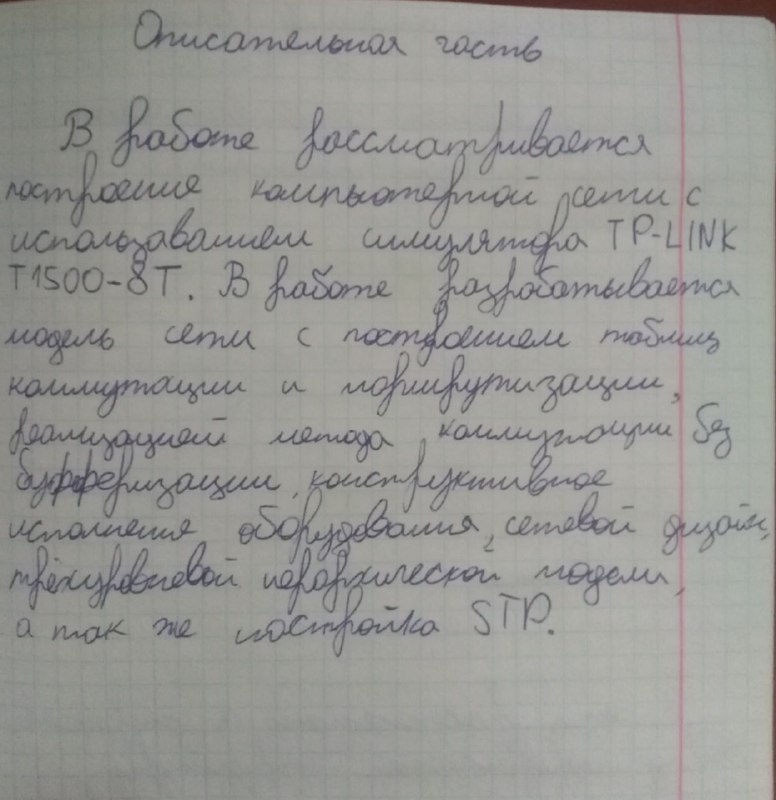 Описательная часть
В работе рассматривается
построение компьютерной сети с
использаванием симулятора TP-LINK
T1500-8T. В работе разрабатывается
модель сети с построением таблиц
коммутации и маршрутизации,
реализацией метода коммутации без
буфферизации, конструктивное
исполнения оборудования, сетевой дизайн,
трёхуровневой иерархической модели,
а так же настройка STP.